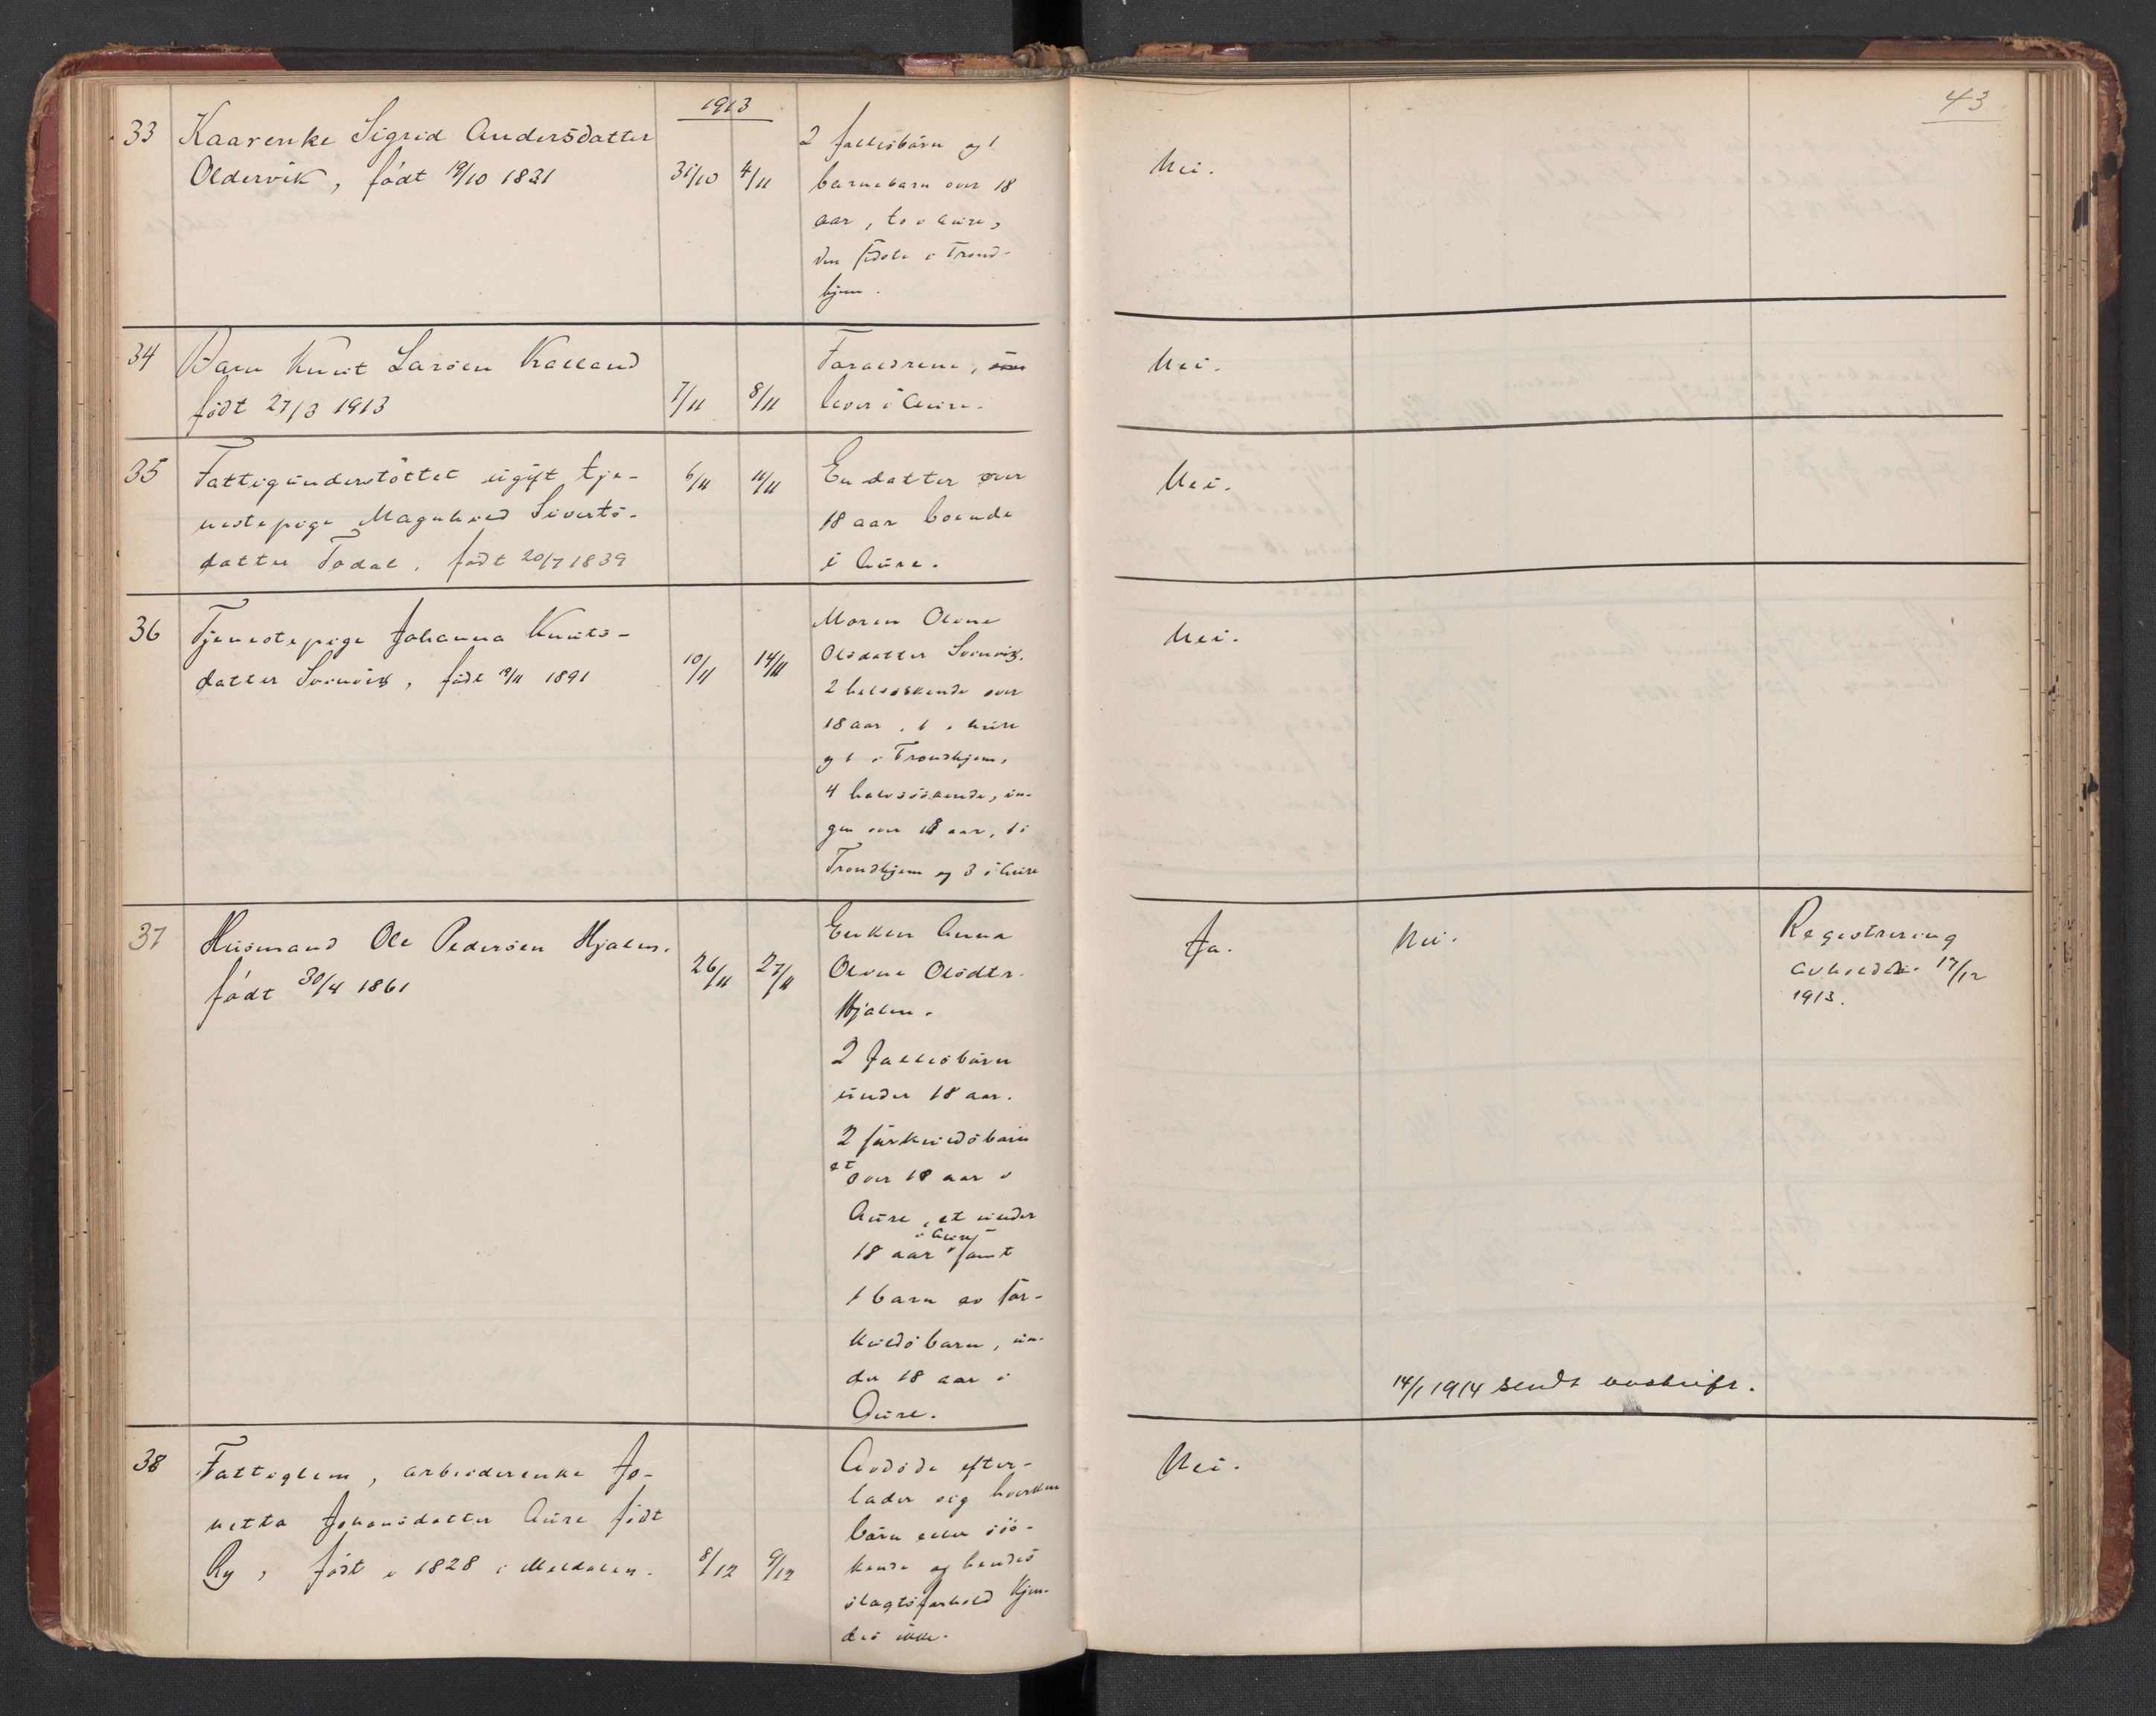 43
1913
33 Kaarenke Sigrid Andersdatter
Oldervik, født 19/10 1831
31/10 4/11
2 fællesbørn og 1
barnebarn over 18
aar, to i Aure,
den sidste i Trond-
hjem.
Nei.
34 Barn Knut Larsen Kalland
født 27/3 1913
7/11 8/11
Forældrene,
lever i Aure.
Nei.
35 Fattigunderstøttet ugift tje-
nestepige Magnhild Siverts-
datter Todal, født 20/7 1839
6/11 11/11
En datter over
18 aar boende
i Aure.
Nei.
36 Tjenestepige Johanna Knuts-
datter Svinvik, født 19/11 1891
10/11 14/11
Moren Oline
Olsdatter Svinvik.
2 helsøskende over
18 aar, 1 i Aure
og 1 i Trondhjem,
4 halvsøskende, in-
gen over 18 aar, 1 i
Trondhjem og 3 i Aure
Nei.
37 Husmand Ole Pedersen Hjalm.
født 30/4 1861
26/11 27/11
Enken Anna
Oline Olsdtr.
Hjalm.
2 fællesbørn
under 18 aar.
2 særkuldsbørn
et over 18 aar i
Aure, et under
18 aar i Aure samt
1 barn av sær-
kuldsbarn, un-
der 18 aar i
Aure.
Ja.
Nei.
Registrering
avholdt 17/12
1913.
14/1 1914 sendt avskrift.
38 Fattiglem, arbeiderenke Jo-
netta Johansdatter Aure født
Ry, født i 1828 i Meldalen.
8/12 9/12
Avdøde efter-
lader sig hverken
børn eller søs-
kende og hendes
slagtsforhold kjen-
des ikke.
Nei.